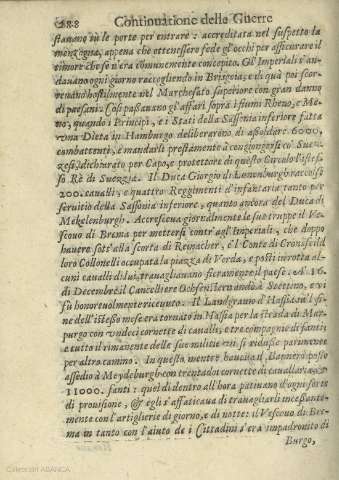 288 Continuatione delle Guerre
stauano sù le porte per entrare: accreditata nel suspetto la
menzogna, appena che ottenessero fede gl'occhi per assicurare il
timore che se n'era comunemente concepito. Gl'Imperiali s'an-
dauano ogni giorno raccogliendo in Brisgoia; e di quà poi scor-
reuano hostilmente nel Marchesato superiore con gran danno
di paesani. Così passauano gl'affari sopra i fiumi Rheno, e Me-
no, quando i Principi, e i Stati della Sassonia inferiore fatta
vna Dieta in Hamburgo deliberarono di assoldare 6000.
combattenti, e mandarli prestamente à congiongersi co' Suez-
zesi, dichiarato per Capo, e protettore di questo Circulo l'istes-
so Rè di Suezzia. Il Duca Giorgio di Lunenburgh raccolse
200. caualli, e quattro Reggimenti d'infantaria tanto per
seruitio della Sassonia inferiore, quanto ancora del Duca di
Mekelenburgh. Accresceua giornalmente le sue truppe il Ve-
scouo di Brema per mettersi contr'agl'Imperiali, che doppo
hauere sott'alla scorta di Reinacher, e'l Conte di Cronsfelt
loro Collonelli occupata la piazza di Verda, e posti in rotta al-
cuni caualli di lui, trauagliauano fieramente il paese. A' 16.
di Decembre il Cancelliere Ochsenstern andò à Soetemo, e vi
fù honoreuolmente riceuuto. Il Landgrauio d'Hassia sù'l fi-
ne dell'istesso mese era tornato in Hassia per la strada di Mar-
purgo con vndeci cornette di caualli, e tre compagnie di fanti;
e tutto il rimanente delle sue militie vi si ridusse parimente
per altro camino. In questo mentre haueua il Bannero posto
assedio à Meydeburgh con trentadoi cornette di caualleria, e
11000. fanti: quei di dentro all'hora patiuano d'ogni sorte
di prouisione, & egli s'affaticaua di trauagliarli incessante-
mente con l'artiglierie di giorno, e di notte: il Vescouo di Bre-
ma in tanto con l'aiuto de i Cittadini s'era impadronito di
Burgo,
Colección ABANCA